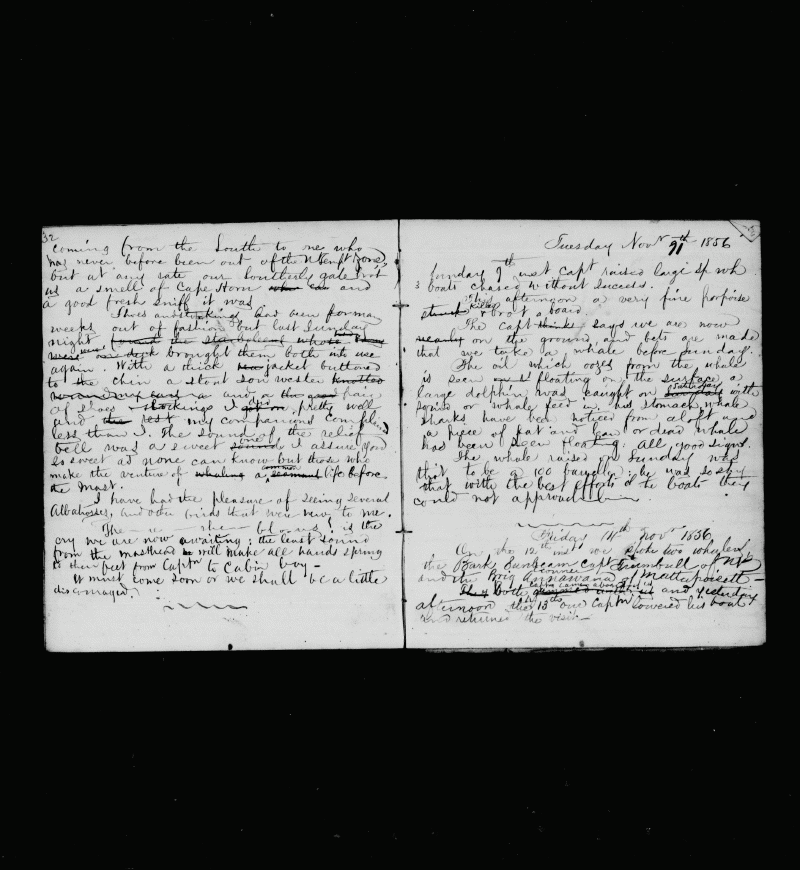 32
coming from the South to me who
has never before been out of the N temp Zone,
but at any rate our southerly gale, not
as a smell of Cape Horn and
a good fresh sniff it was
Shoes and stockings had been for many
weeks out of fashion but last Sunday
night
brought them both into use
again. With a thick jacket buttoned
to the chin a stout sou wester
and a pair
of shoes stockings I got on pretty well
and the rest my companions complain
less than I. The sound of the relief
bell was a sweet one I assure you
so sweet as none can know but those who
make the venture of whaling a common seamans life before
the mast.
I have had the pleasure of seeing several
Albatrosses, and other birds that were new to me.
The blows! is the
cry we are now awaiting; the least sound
from the masthead will make all hands spring
to their feet from Captn to Cabin boy—
It must come soon or we shall be a little
discouraged.
Tuesday Novr 11th 1856
Sunday 9th inst Capt raised large sp wh
3 boats chased without success.
This afternoon a very fine porpoise
struck killed & brot aboard.
The Capt thinks says we are now
nearly on the ground, and bets are made
that we take a whale before Sunday.
The oil which oozes from the whale
is seen floating on the surface, a
large dolphin was caught on Saturday with
squid or whale feed in his stomach, whale
sharks have been noticed from aloft and
a piece of fat and lean or dead whale
has been seen floating. All good signs.
The whale raised on Sunday was
thot to be a 100 bareller; he was so shy
that with the best efforts of the boats they
could not approach him
Friday 14th Novr 1856
On the 12th inst we spoke two whalers
the Bark Sunbeam capt of N B
and the Brig Annawana of Mattapoisett—
They both capts came aboard and yesterday
afternoon the 13th our Captn lowered his boat
and returned the visit—